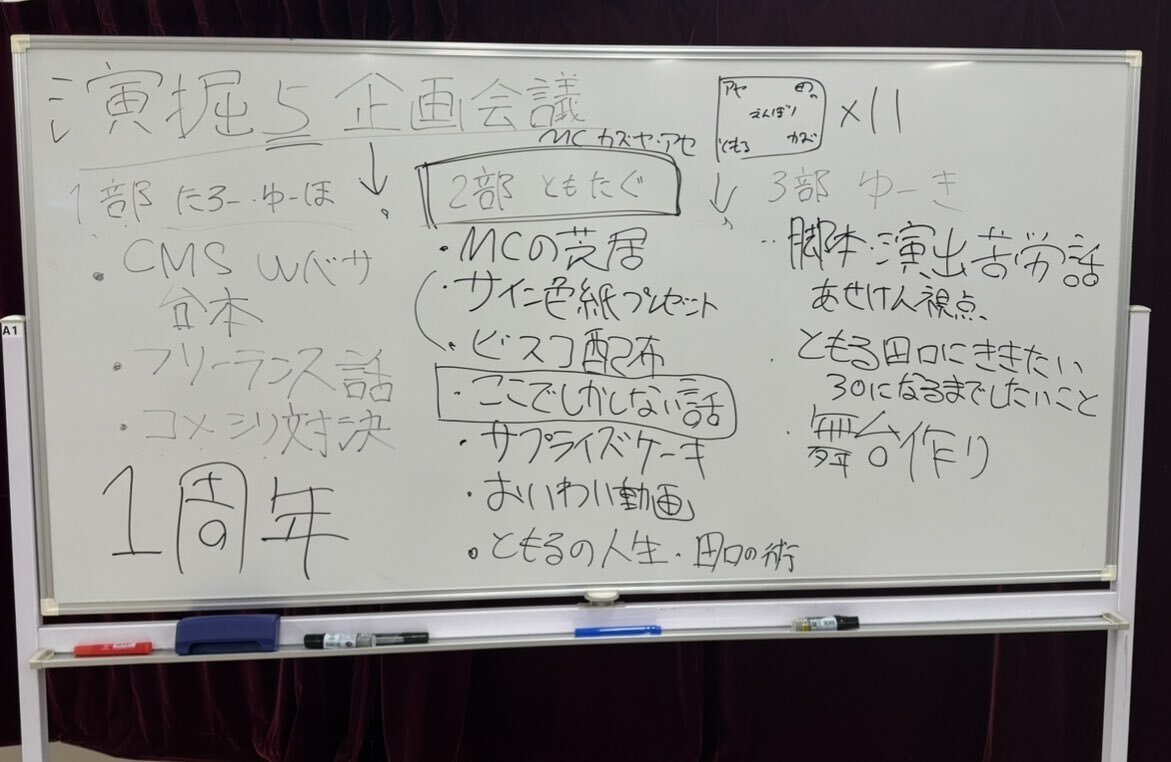 演掘5 企画会議
MC カズヤ・アセ
アヤ
えんぼり
ともる カズ
×11
1部 たろー・ゆーほ
・CMS Wベサ
台本
・フリーランス話
・コメシリ対決
1周年
2部 ともたぐ
・MCの芝居
・サイン色紙プレゼント
・ビスコ配布
・ここでしかしない話
・サプライズケーキ
・おいわい動画
・ともるの人生・田口の術
3部 ゆーき
・脚本・演出苦労話
あせけん視点
・ともる田口にききたい
30になるまでしたいこと
・舞台作り
A1